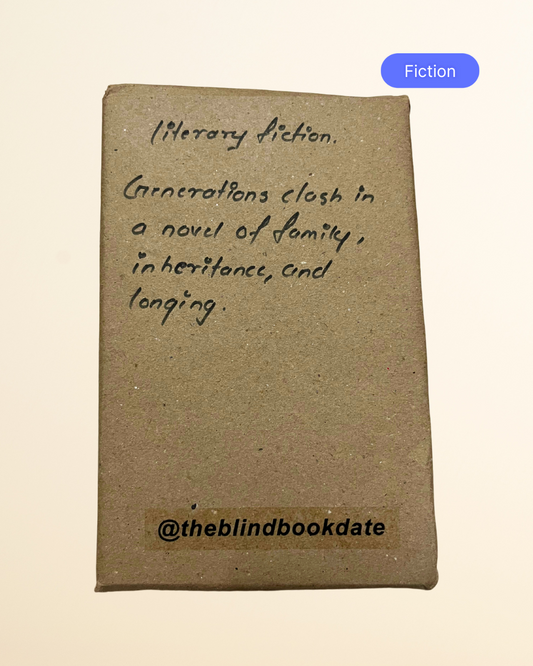 Fiction
literary fiction.
Generations clash in
a novel of family,
inheritance, and
longing.
@theblindbookdate